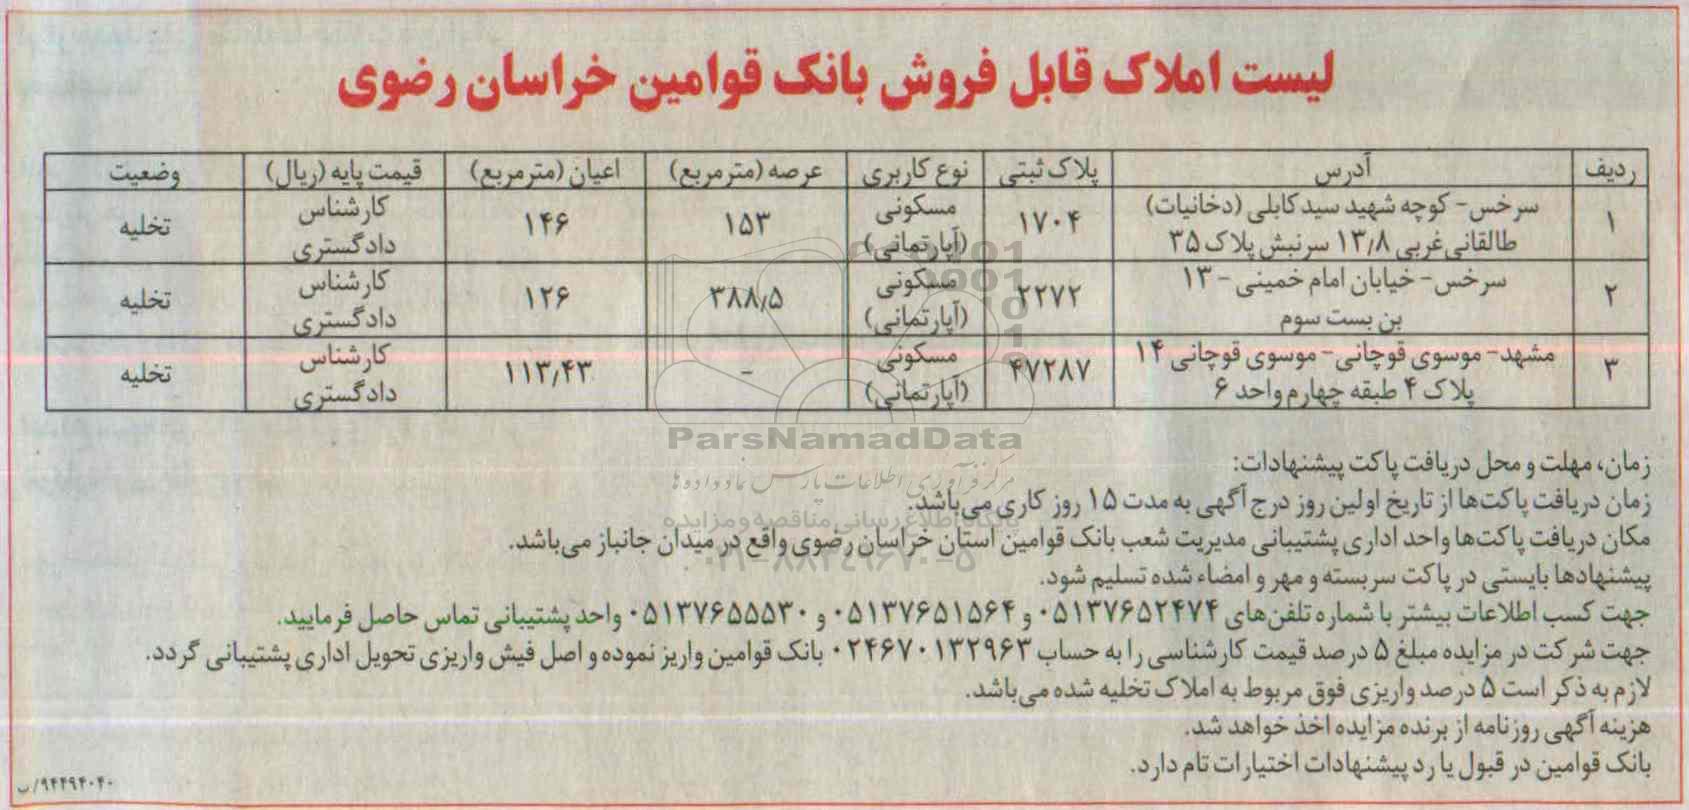 لیست املاک قابل فروش بانک قوامین خراسان رضوی
ردیف آدرس پلاک ثبتی نوع کاربری عرصه (مترمربع) اعیان (مترمربع) قیمت پایه (ریال) وضعیت
۱ سرخس- کوچه شهید سید کابلی (دخانیات) طالقانی غربی ۱۳٫۸ سرنبش پلاک ۳۵ ۱۷۰۴ مسکونی (آپارتمانی) ۱۵۳ ۱۴۶ کارشناس دادگستری تخلیه
۲ سرخس- خیابان امام خمینی - ۱۳ بن بست سوم ۲۲۷۲ مسکونی (آپارتمانی) ۳۸۸٫۵ ۱۲۶ کارشناس دادگستری تخلیه
۳ مشهد- موسوی قوچانی- موسوی قوچانی ۱۴ پلاک ۴ طبقه چهارم واحد ۶ ۴۷۲۸۷ مسکونی (آپارتمانی) - ۱۱۳٫۴۳ کارشناس دادگستری تخلیه
ParsNamadData
مرکز فرآوری اطلاعات پارس نماد داده‌ها
پایگاه اطلاع رسانی مناقصه و مزایده
۰۲۱-۸۸۳۴۹۶۷۰-۵
زمان، مهلت و محل دریافت پاکت پیشنهادات:
زمان دریافت پاکت‌ها از تاریخ اولین روز درج آگهی به مدت ۱۵ روز کاری می‌باشد.
مکان دریافت پاکت‌ها واحد اداری پشتیبانی مدیریت شعب بانک قوامین استان خراسان رضوی واقع در میدان جانباز می‌باشد.
پیشنهادها بایستی در پاکت سربسته و مهر و امضاء شده تسلیم شود.
جهت کسب اطلاعات بیشتر با شماره تلفن‌های ۰۵۱۳۷۶۵۲۴۷۴ و ۰۵۱۳۷۶۵۱۵۶۴ و ۰۵۱۳۷۶۵۵۵۳۰ واحد پشتیبانی تماس حاصل فرمایید.
جهت شرکت در مزایده مبلغ ۵ درصد قیمت کارشناسی را به حساب ۰۲۴۶۷۰۱۳۲۹۶۳ بانک قوامین واریز نموده و اصل فیش واریزی تحویل اداری پشتیبانی گردد.
لازم به ذکر است ۵ درصد واریزی فوق مربوط به املاک تخلیه شده می‌باشد.
هزینه آگهی روزنامه از برنده مزایده اخذ خواهد شد.
بانک قوامین در قبول یا رد پیشنهادات اختیارات تام دارد.
۹۴۴۹۴۰۴۰/ب